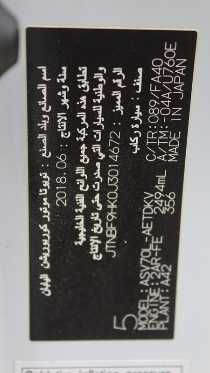 اسم الصانع وبلد الصنع : تويوتا موتور كوربوريشن اليابان
سنة وشهر الإنتاج : 2018.06
تطابق هذه المركبة جميع اللوائح الفنية الخليجية
والوطنية للسيارات التي صدرت حتى تاريخ الإنتاج
الرقم المميز : JTNBF9HK0J3014672
صنف : سيارة ركاب
5
MODEL: ASV70L-AETDKV
ENGINE: 2AR-FE 2494mL
PLANT: A42 356
C/TR: 089/FA40
MADE IN JAPAN